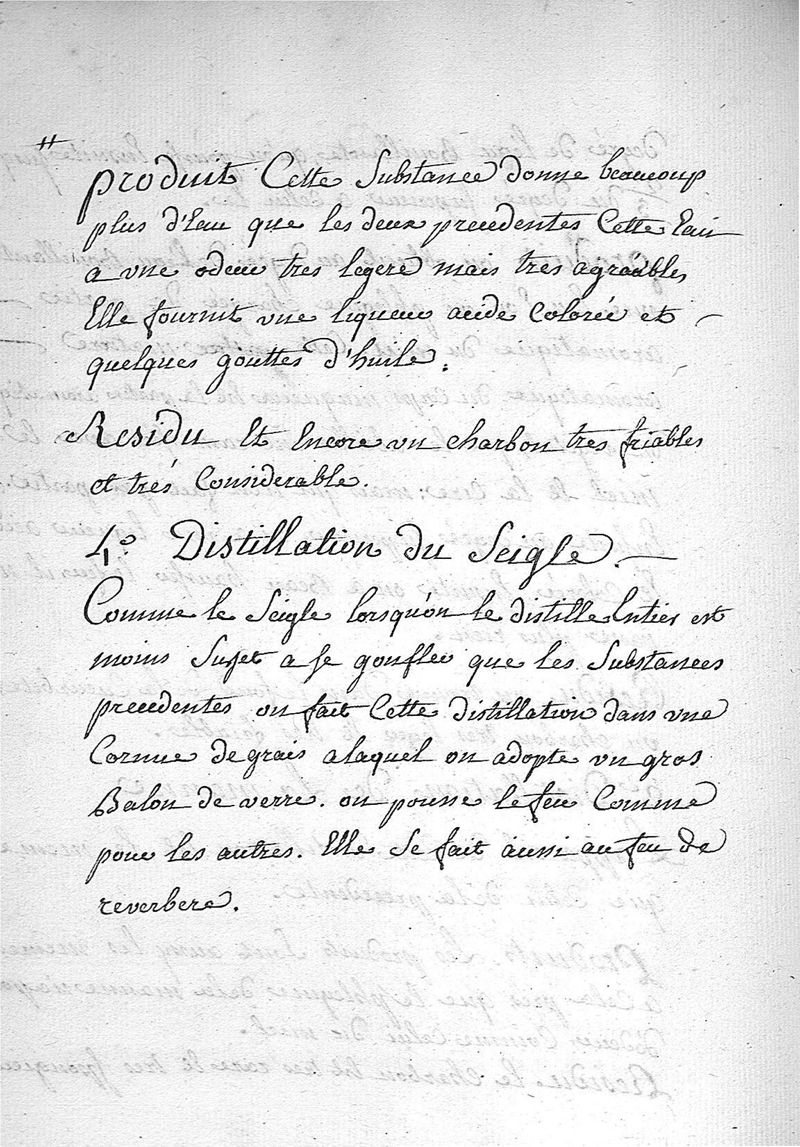 produit Cette Substance donne beaucoup
plus d'Eau que les deux precedentes Cette Eau
a vne odeur tres legere mais tres agreables
Elle fournit vne liqueur acide Colorée et
quelques gouttes d'huile.
Residu Et Encore vn charbon tres friables
et trés Considerable.
4.º Distillation du Seigle.
Comme le Seigle lorsqu'on le distille Entier est
moins Sujet a se gonfler que les Substances
precedentes on fait Cette distillation dans vne
Cornue de grais a laquel on adopte vn gros
Balon de verre. on pousse le feu Comme
pour les autres. Elle Se fait aussi au feu de
reverbere.